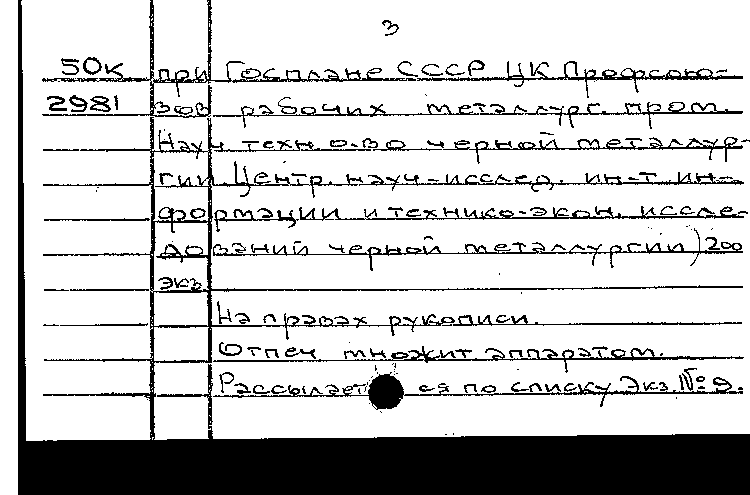 3
50к при Госплане СССР ЦК Профсою-
2981 зов рабочих металлург. пром.
Науч техн. о-во черной металлур-
гии. Центр. науч-исслед. ин-т ин-
формации и технико-экон. иссле-
дований черной металлургии) 200
экз
На правах рукописи.
Отпеч множит аппаратом.
Рассылается по списку Экз № 9.